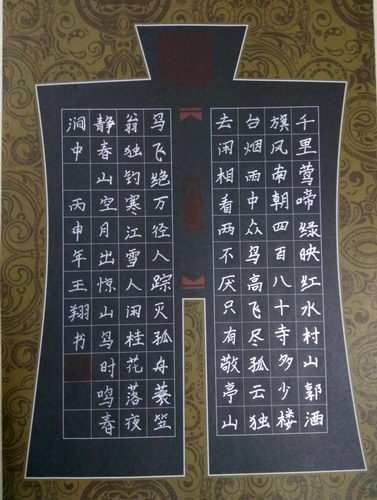 千里莺啼绿映红水村山郭酒
旗风南朝四百八十寺多少楼
台烟雨中众鸟高飞尽孤云独
去闲相看两不厌只有敬亭山
鸟飞绝万径人踪灭孤舟蓑笠
翁独钓寒江雪人闲桂花落夜
静春山空月出惊山鸟时鸣春
涧中 丙申年王翔书